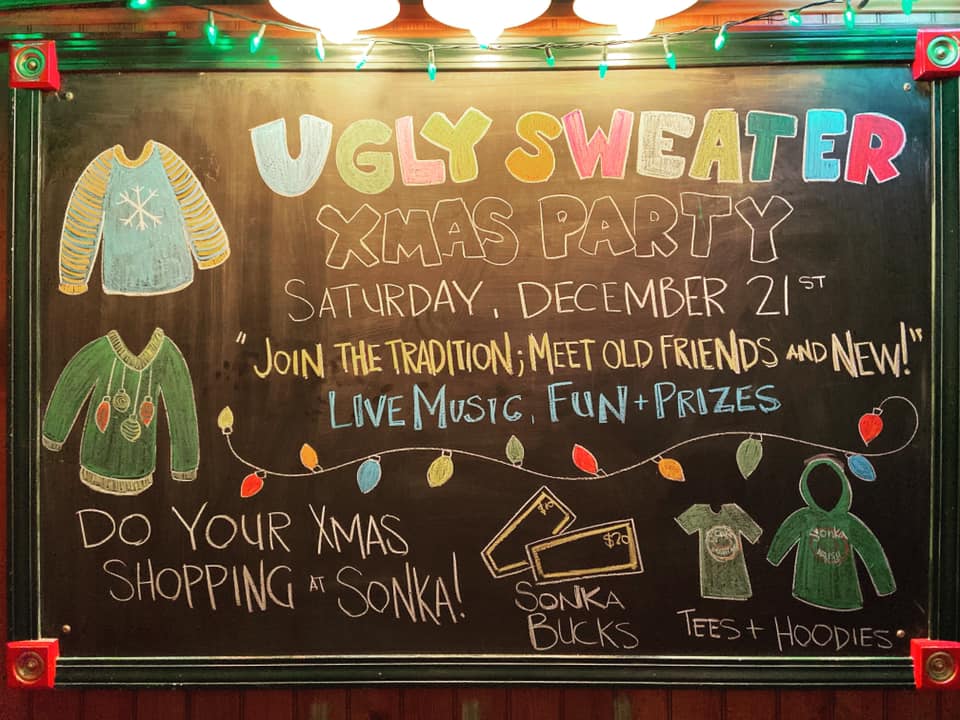 UGLY SWEATER
XMAS PARTY
SATURDAY, DECEMBER 21ST
"JOIN THE TRADITION; MEET OLD FRIENDS AND NEW!"
LIVE MUSIC, FUN + PRIZES
DO YOUR XMAS
SHOPPING AT SONKA!
$20
SONKA
BUCKS
SONKA
TEES + HOODIES